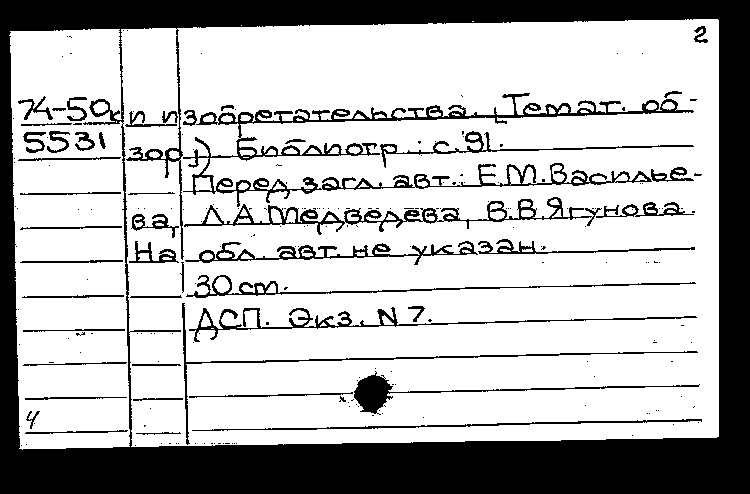 2
74-50к и изобретательства. (Темат. об-
5531 зор.) Библиогр.: с. 91.
Перед загл. авт.: Е.М. Василье-
ва, Л.А. Медведева, В.В. Ягунова.
На обл. авт. не указан.
30 cm.
ДСП. Экз. N 7.
4